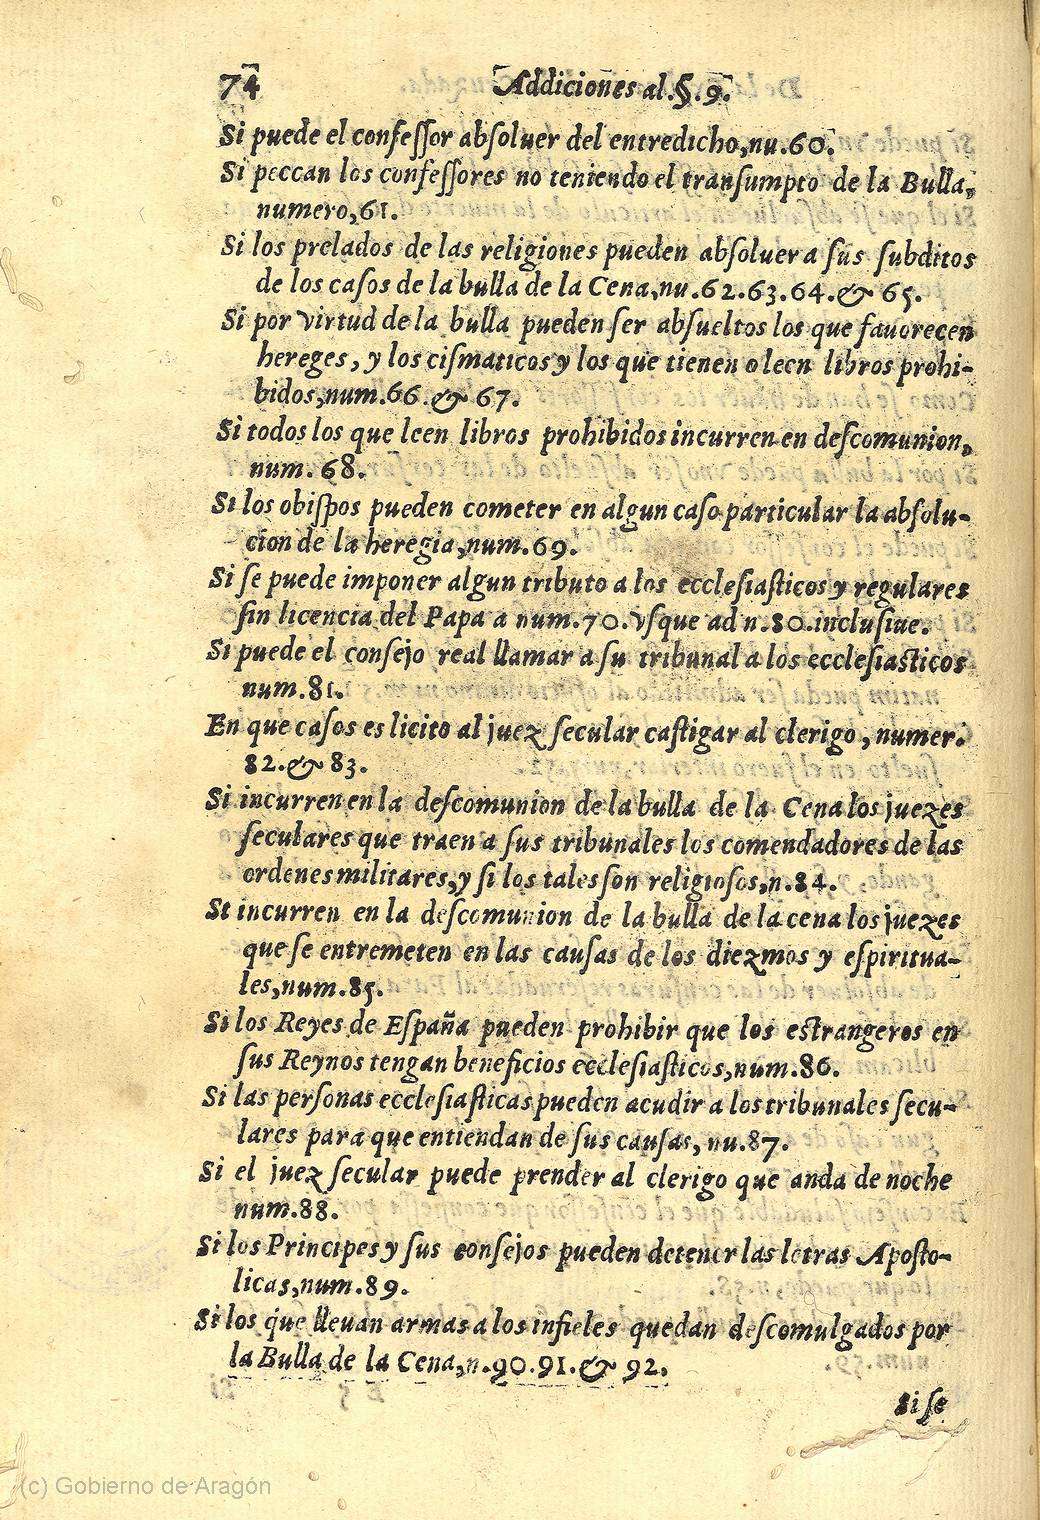 74 Addiciones al.§.9.
Si puede el confeſſor abſoluer del entredicho,nu.60.
Si peccan los confeſſores no teniendo el tranſumpto de la Bulla,
numero,61.
Si los prelados de las religiones pueden abſoluer a ſus ſubditos
de los caſos de la bulla de la Cena,nu.62.63.64.& 65.
Si por virtud de la bulla pueden ſer abſueltos los que fauorecen
hereges, y los ciſmaticos y los que tienen o leen libros prohi-
bidos,num.66.& 67.
Si todos los que leen libros prohibidos incurren en deſcomunion,
num.68.
Si los obiſpos pueden cometer en algun caſo particular la abſolu-
cion de la heregia,num.69.
Si ſe puede imponer algun tributo a los eccleſiaſticos y regulares
ſin licencia del Papa a num.70.vſque ad n.80.incluſiue.
Si puede el conſejo real llamar a ſu tribunal a los eccleſiaſticos
num.81.
En que caſos es licito al juez ſecular caſtigar al clerigo, numer.
82.& 83.
Si incurren en la deſcomunion de la bulla de la Cena los juezes
ſeculares que traen a ſus tribunales los comendadores de las
ordenes militares,y ſi los tales ſon religioſos,n.84.
St incurren en la deſcomunion de la bulla de la cena los juezes
que ſe entremeten en las cauſas de los diezmos y eſpiritua-
les,num.85.
Si los Reyes de Eſpaña pueden prohibir que los eſtrangeros en
ſus Reynos tengan beneficios eccleſiaſticos,num.86.
Si las perſonas eccleſiaſticas pueden acudir a los tribunales ſecu-
lares para que entiendan de ſus cauſas, nu.87.
Si el juez ſecular puede prender al clerigo que anda de noche
num.88.
Si los Principes y ſus conſejos pueden detener las letras Apoſto-
licas,num.89.
Si los que lleuan armas a los infieles quedan deſcomulgados por
la Bulla de la Cena,n.90.91.& 92.
Si ſe
(c) Gobierno de Aragón